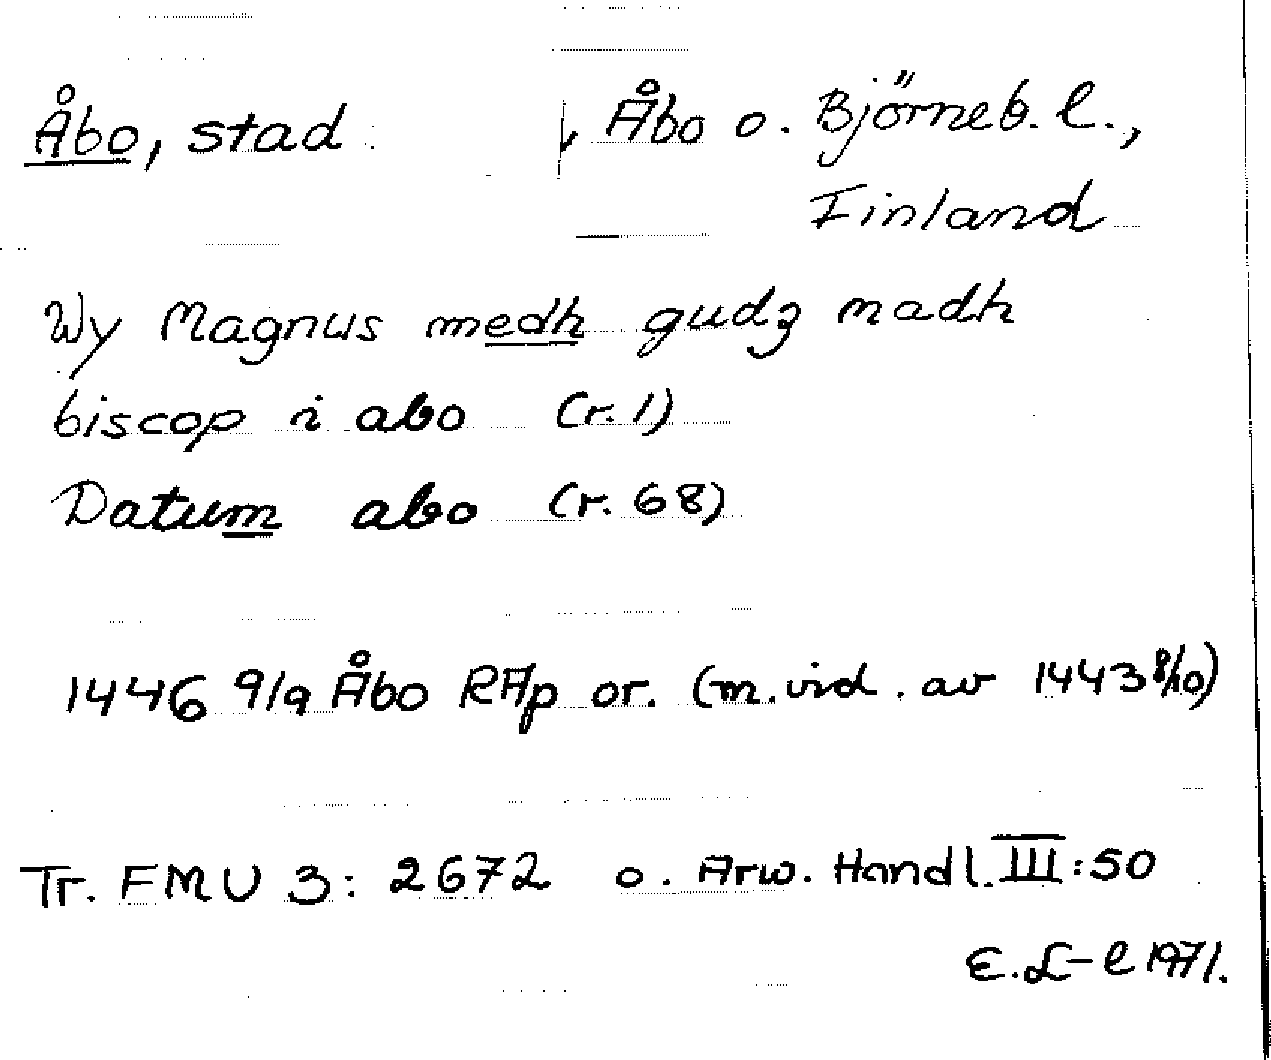 Åbo, stad. Åbo o. Björneb. l.,
Finland
Wy Magnus medh gudz nadh
biscop i abo (r. 1)
Datum abo (r. 68)
1446 9/9 Åbo RAp or. (m. vid. av 1443 8/10)
Tr. FMU 3: 2672 o. Arw. Handl. III:50
E.L-l 1971.